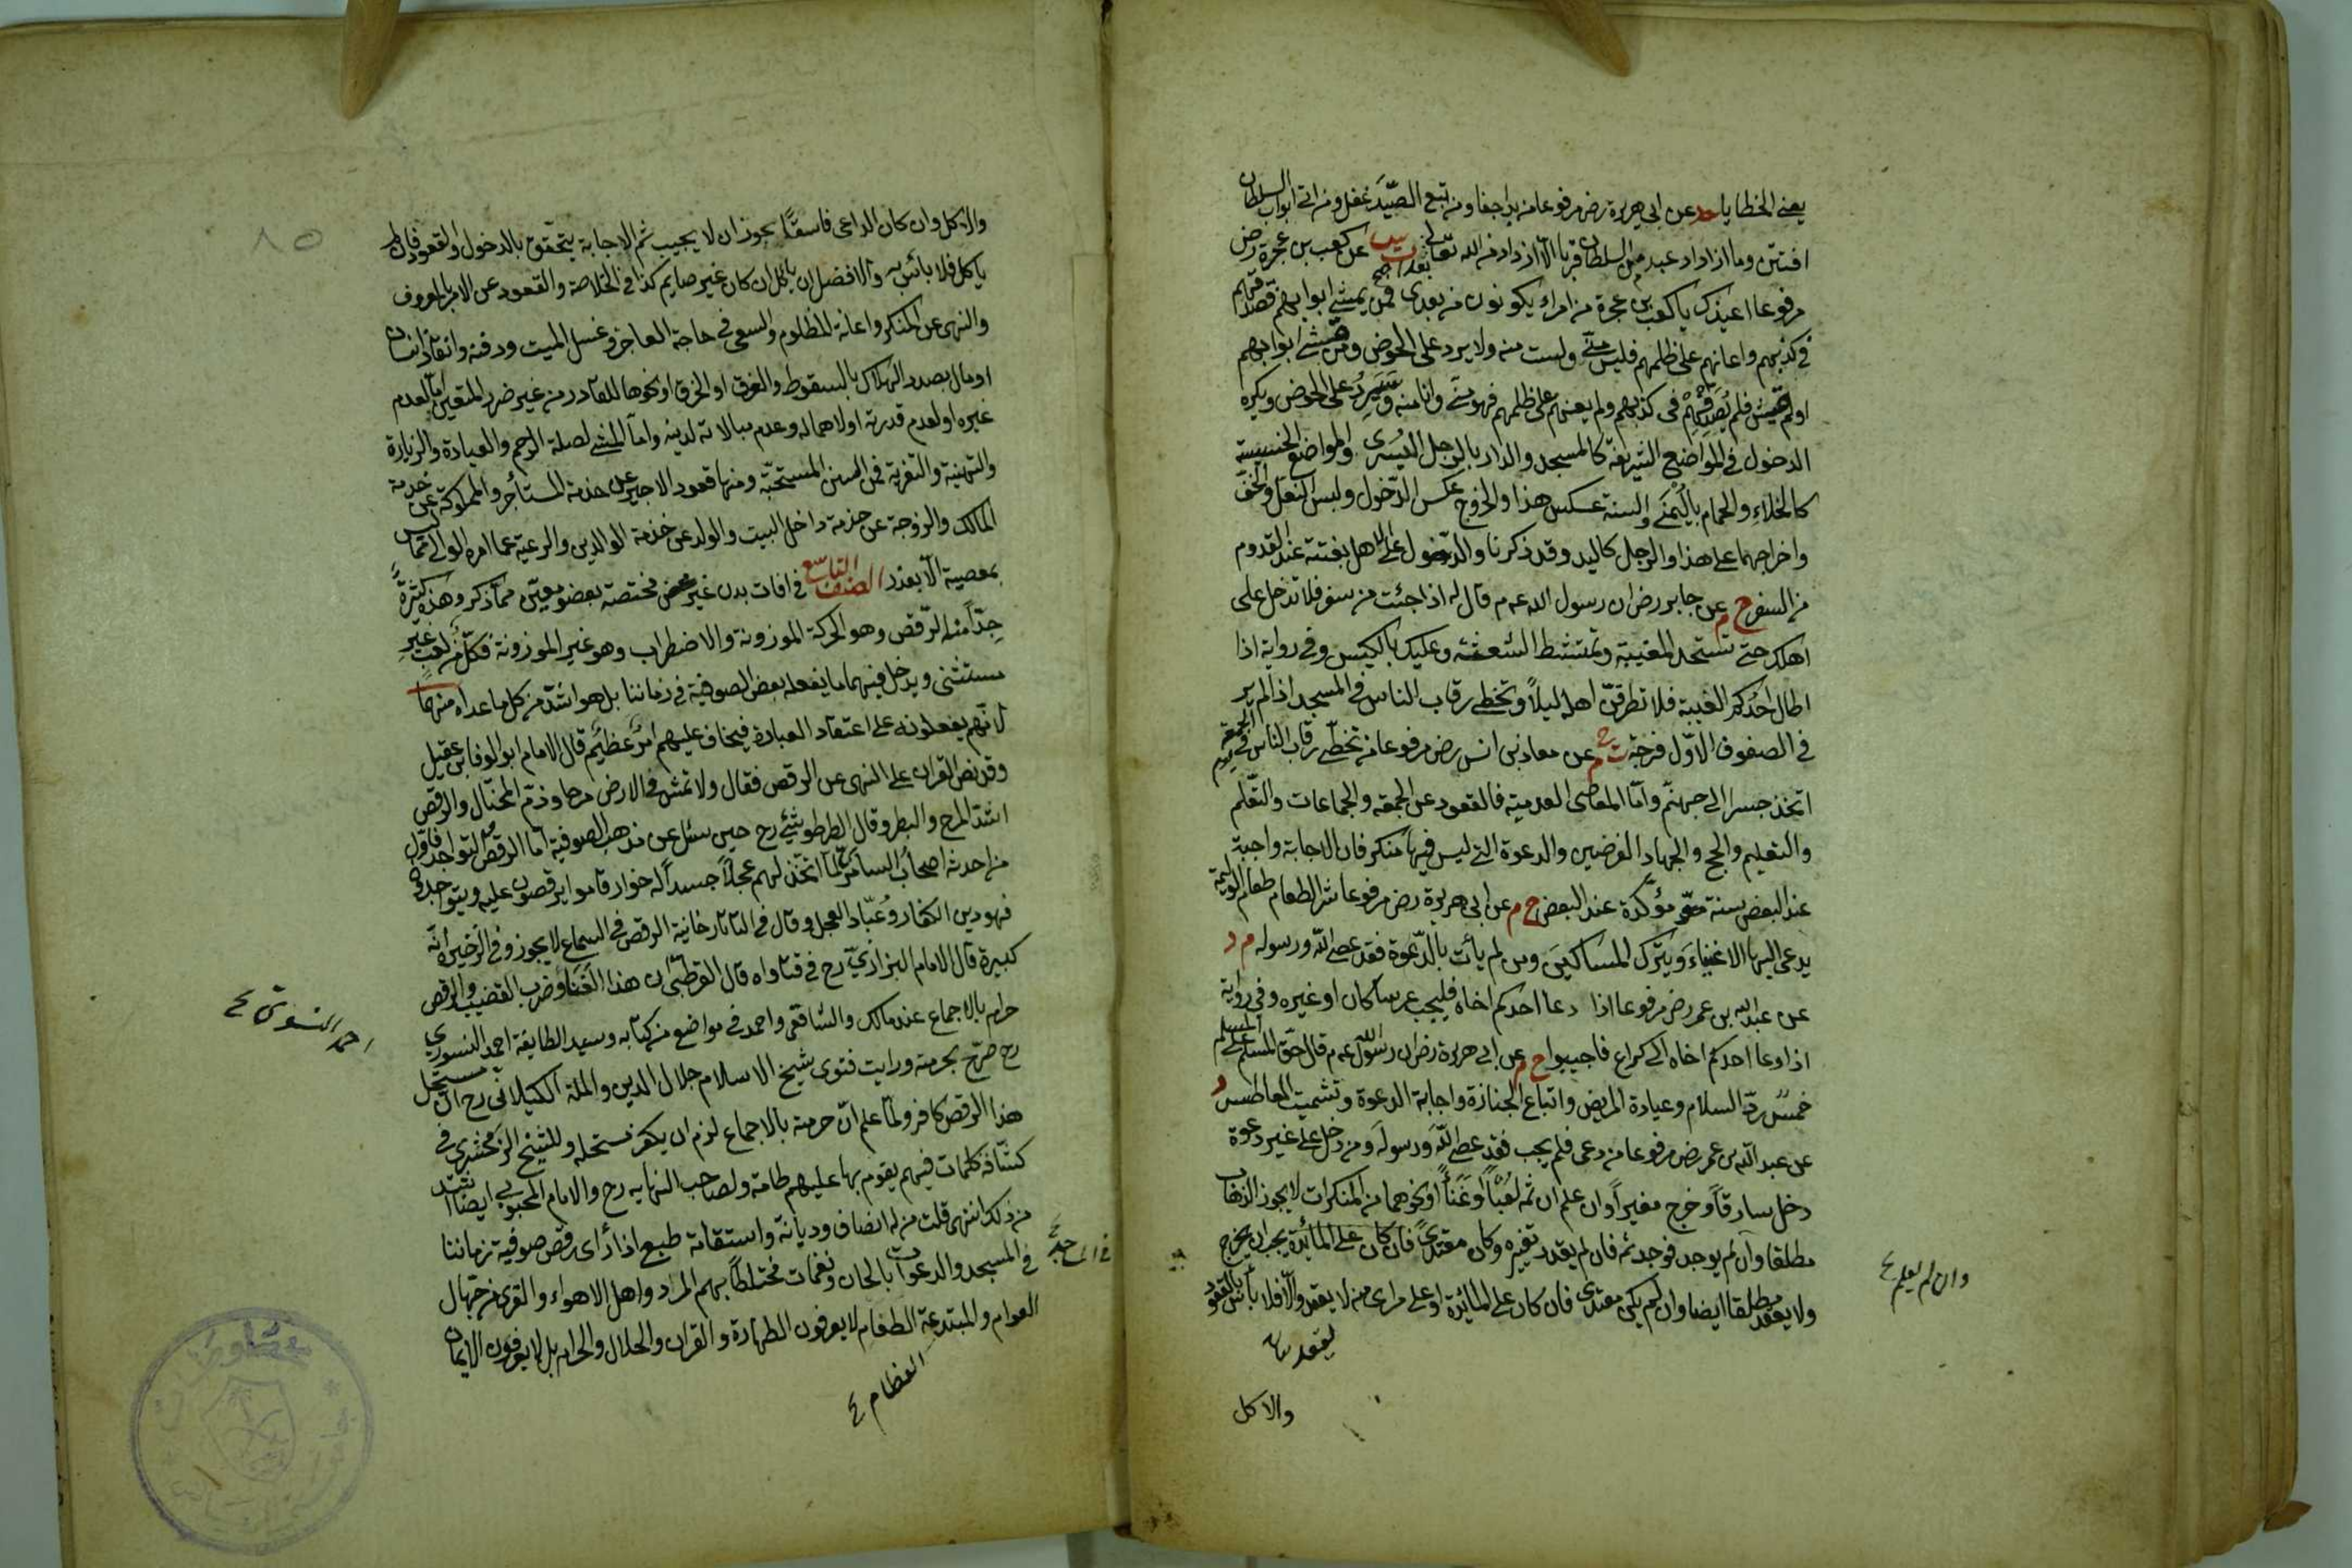 يعنى الخطايا حد عن ابى هريرة رض مرفوعا من بدا جفا ومن تبع الصيد غفل ومن اتى ابواب السلطان
افتتن وما ازداد عبد من السلطان قربا الا ازداد من الله تعالى بعدا عن كعب بن عجرة رض
مرفوعا اعيذك يا كعب بن عجرة من امراء يكونون من بعدى فمن غشى ابوابهم فصدقهم
فى كذبهم واعانهم على ظلمهم فليس منى ولست منه ولا يرد على الحوض ومن غشى ابوابهم
اولم يغش فلم يصدقهم فى كذبهم ولم يعنهم على ظلمهم فهو منى وانا منه وسيرد على الحوض ويكره
الدخول فى المواضع الشريفة كالمسجد والدار بالرجل اليسرى والمواضع الخسيسة
كالخلاء والحمام باليمنى والسنة عكس هذا والخروج عكس الدخول ولبس النعل والخف
واخراجهما على هذا والرجل كاليد وقد ذكرنا والدخول على الاهل بغتة عند القدوم
من السفر خ م عن جابر رض ان رسول الله عم قال له اذا جئت من سفر فلا تدخل على
اهلك حتى تستحد المغيبة وتمتشط الشعثة وعليك بالكيس وفى رواية اذا
اطال احدكم الغيبة فلا تطرقن اهله ليلا وتخطى رقاب الناس فى المسجد اذا لم ير
فى الصفوف الاول فرجة ت عن معاذ بن انس رض مرفوعا من تخطى رقاب الناس يوم الجمعة
اتخذ جسرا الى جهنم واما المعاصى العدمية فالقعود عن الجمعة والجماعات والتعلم
والتعليم والحج والجهاد الفرضين والدعوة التى ليس فيها منكر فان الاجابة واجبة
عند البعض سنة مؤكدة عند البعض خ م عن ابى هريرة رض مرفوعا شر الطعام طعام الوليمة
يدعى اليها الاغنياء ويترك المساكين ومن لم يأت بالدعوة فقد عصى الله ورسوله م د
عن عبد الله بن عمر رض مرفوعا اذا دعا احدكم اخاه فليجب عرسا كان او غيره وفى رواية
اذا دعا احدكم اخاه الى كراع فاجيبوا خ م عن ابى هريرة رض ان رسول الله عم قال حق المسلم على المسلم
خمس رد السلام وعيادة المريض واتباع الجنازة واجابة الدعوة وتشميت العاطس د
عن عبد الله بن عمر رض مرفوعا من دعى فلم يجب فقد عصى الله ورسوله ومن دخل على غير دعوة
دخل سارقا وخرج مغيرا وان علم ان ثمه لعبا او غناً او نحوهما من المنكرات لا يجوز الذهاب
مطلقا وان لم يوجد فوجد ثمه فان لم يقدر تغيره وكان مقتدى فان كان على المائدة يجب ان يخرج
ولا يقعد مطلقا ايضا وان لم يكن مقتدى فان كان على المائدة او على مرآى منه لا يقعد والا فلا بأس بالقعود
وان لم يعلم ع
يقعد
والاكل
٨٥
والاكل وان كان الداعى فاسقا يجوز ان لا يجيب ثم الاجابة يتحقق بالدخول والقعود فان لم
ياكل فلا بأس به والافضل ان ياكل ان كان غير صايم كذا فى الخلاصة والقعود عن الامر بالمعروف
والنهى عن المنكر واعانة المظلوم والسعى فى حاجة العاجز وغسل الميت ودفنه وانقاذ انسان
او مال بصدد الهلاك بالسقوط والغرق او الخرق او نحوها للقادر من غير ضرر المتعين اما لعدم
غيره او لعدم قدرته او لاهماله وعدم مبالاته لدينه واما المشى لصلة الرحم والعيادة والزيارة
والتهنية والتعزية فمن السنن المستحبة ومنها قعود الاجير عن خدمة المستأجر والمملوك عن خدمة
المالك والزوجة عن خدمة داخل البيت والولد عن خدمة الوالدين والرعية عما امره الوالى مما ليس
بمعصية الا بعذر الصنف التاسع فى افات بدن غير مختصة بعضو معين مما ذكر وهذه كثيرة
جدا منه الرقص وهو الحركة الموزونة والاضطراب وهو غير الموزونة فكل من لعب غير
مستثنى ويدخل فيهما ما يفعله بعض الصوفية فى زماننا بل هو اشد من كل ما عداه منهما
لانهم يفعلونه على اعتقاد العبادة فيخاف عليهم امر عظيم قال الامام ابو الوفا بن عقيل
وقد نص القران على النهى عن الرقص فقال ولا تمش فى الارض مرحا وذم المختال والرقص
اشد المرح والبطر وقال الطرطوشى رح حين سئل عن مذهب الصوفية اما الرقص والتواجد فاول
من احدثه اصحاب السامرى لما اتخذ لهم عجلا جسدا له خوار قاموا يرقصون عليه ويتواجدون
فهو دين الكفار وعباد العجل وقال فى التاتارخانية الرقص فى السماع لا يجوز وفى الذخيرة انه
كبيرة قال الامام البزازى رح فى فتاواه قال القرطبى ان هذا الغناء وضرب القضيب والرقص
حرام بالاجماع عند مالك والشافعى واحمد فى مواضع من كتابه وسيد الطايفة احمد النسورى
رح صرح بحرمته ورايت فتوى شيخ الاسلام جلال الدين والملة الكيلانى رح ان مستحل
هذا الرقص كافر ولما علم ان حرمته بالاجماع لزم ان يكفر مستحله وللشيخ الزمخشرى فى
كشافه كلمات فيهم يقوم بها عليهم طامة ولصاحب النهايه رح والامام المحبوبى ايضا اشد
من ذلك انتهى قلت من له انصاف وديانة واستقامة طبع اذا رأى رقص صوفية زماننا
فى المسجد والدعوات بالحان ونغمات مختلطا بهم المراد واهل الاهواء والقرى من جهال
العوام والمبتدعة الطغام لا يعرفون الطهارة والقران والحلال والحرام بل لا يعرفون الايمان
احمد النسوى ع
العظام ع